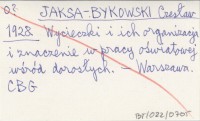 0? JAKSA-BYKOWSKI Czesław
1928. Wycieczki i ich organizacja
i znaczenie w pracy oświatowej
wśród dorosłych. – Warszawa.
CBG